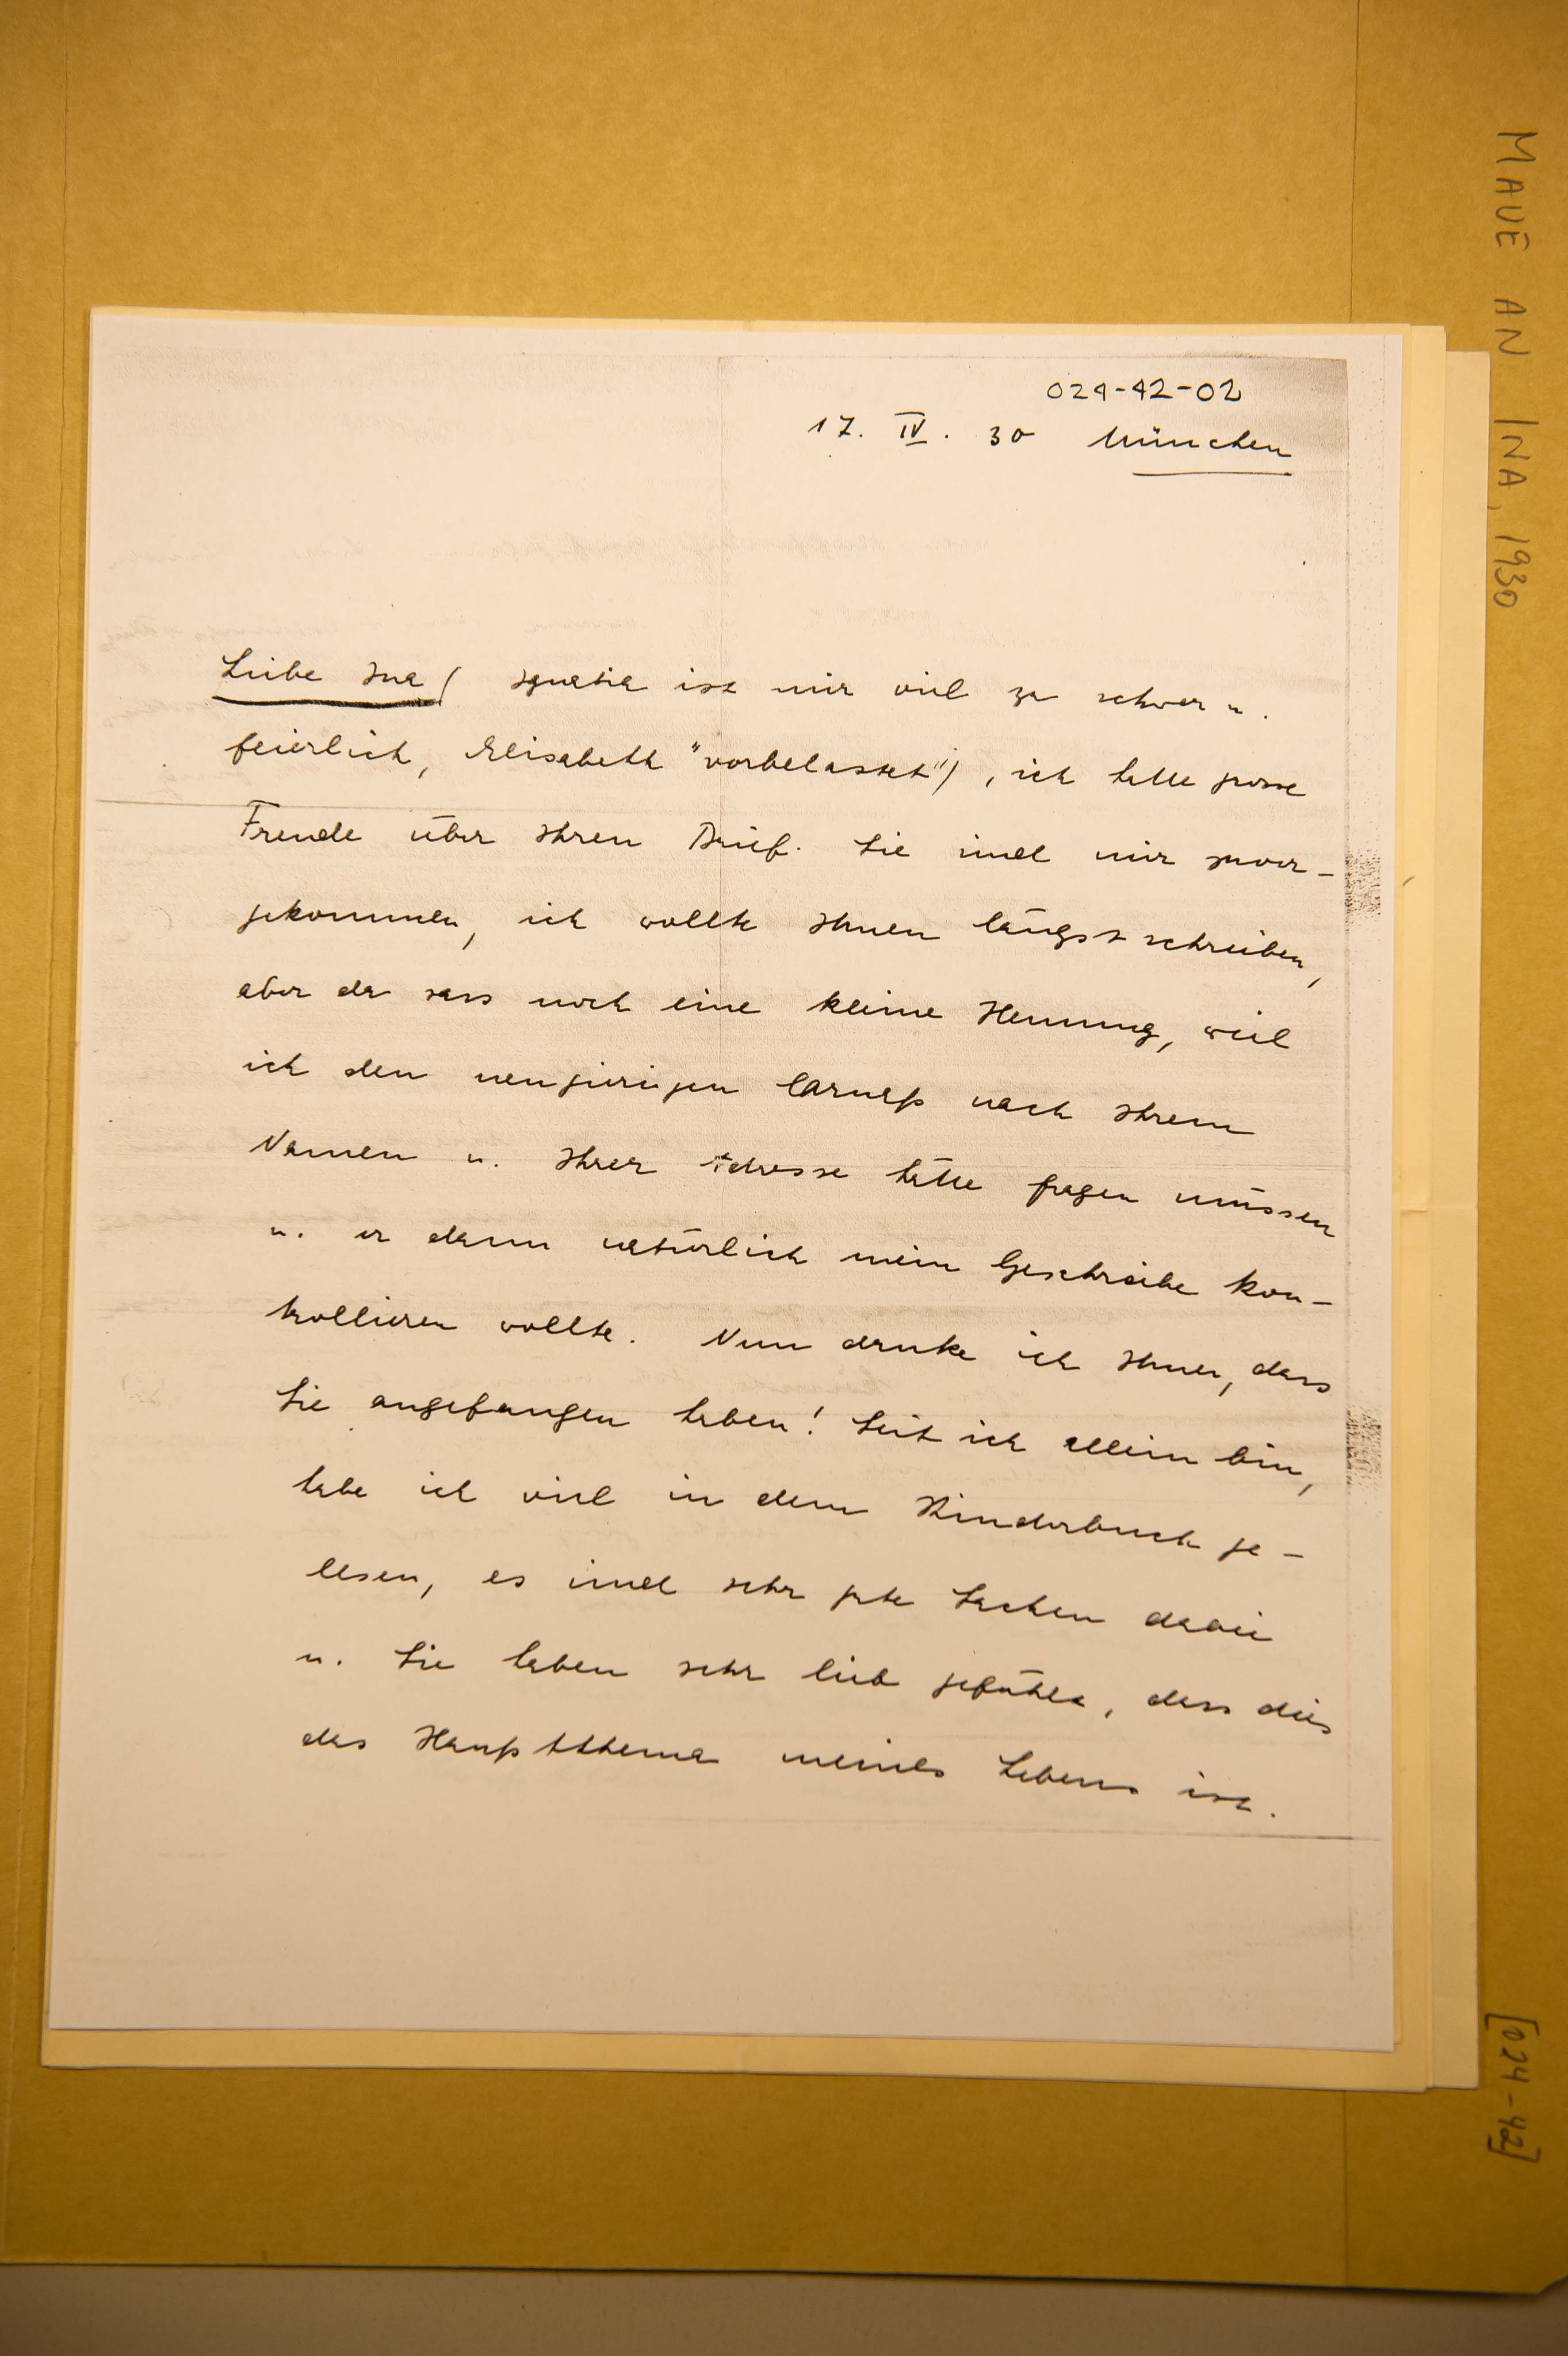 024-42-02
17. IV. 30 München
Liebe Ina ( Ignatia ist mir viel zu schwer u.
feierlich, Elisabeth "vorbelastet"), ich hatte grosse
Freude über Ihren Brief. Sie sind mir zuvor-
gekommen, ich wollte Ihnen längst schreiben,
aber da sass noch eine kleine Hemmung, weil
ich den neugierigen Carnap nach Ihrem
Namen u. Ihrer Adresse hätte fragen müssen
u. er dann natürlich mein Geschreibe kon-
trollieren wollte. Nun danke ich Ihnen, dass
Sie angefangen haben! Seit ich allein bin,
habe ich viel in dem Kinderbuch ge-
lesen, es sind sehr gute Sachen darin
u. Sie haben sehr lieb gefühlt, dass dies
das Hauptthema meines Lebens ist.
MAUE AN INA, 1930
[024-42]